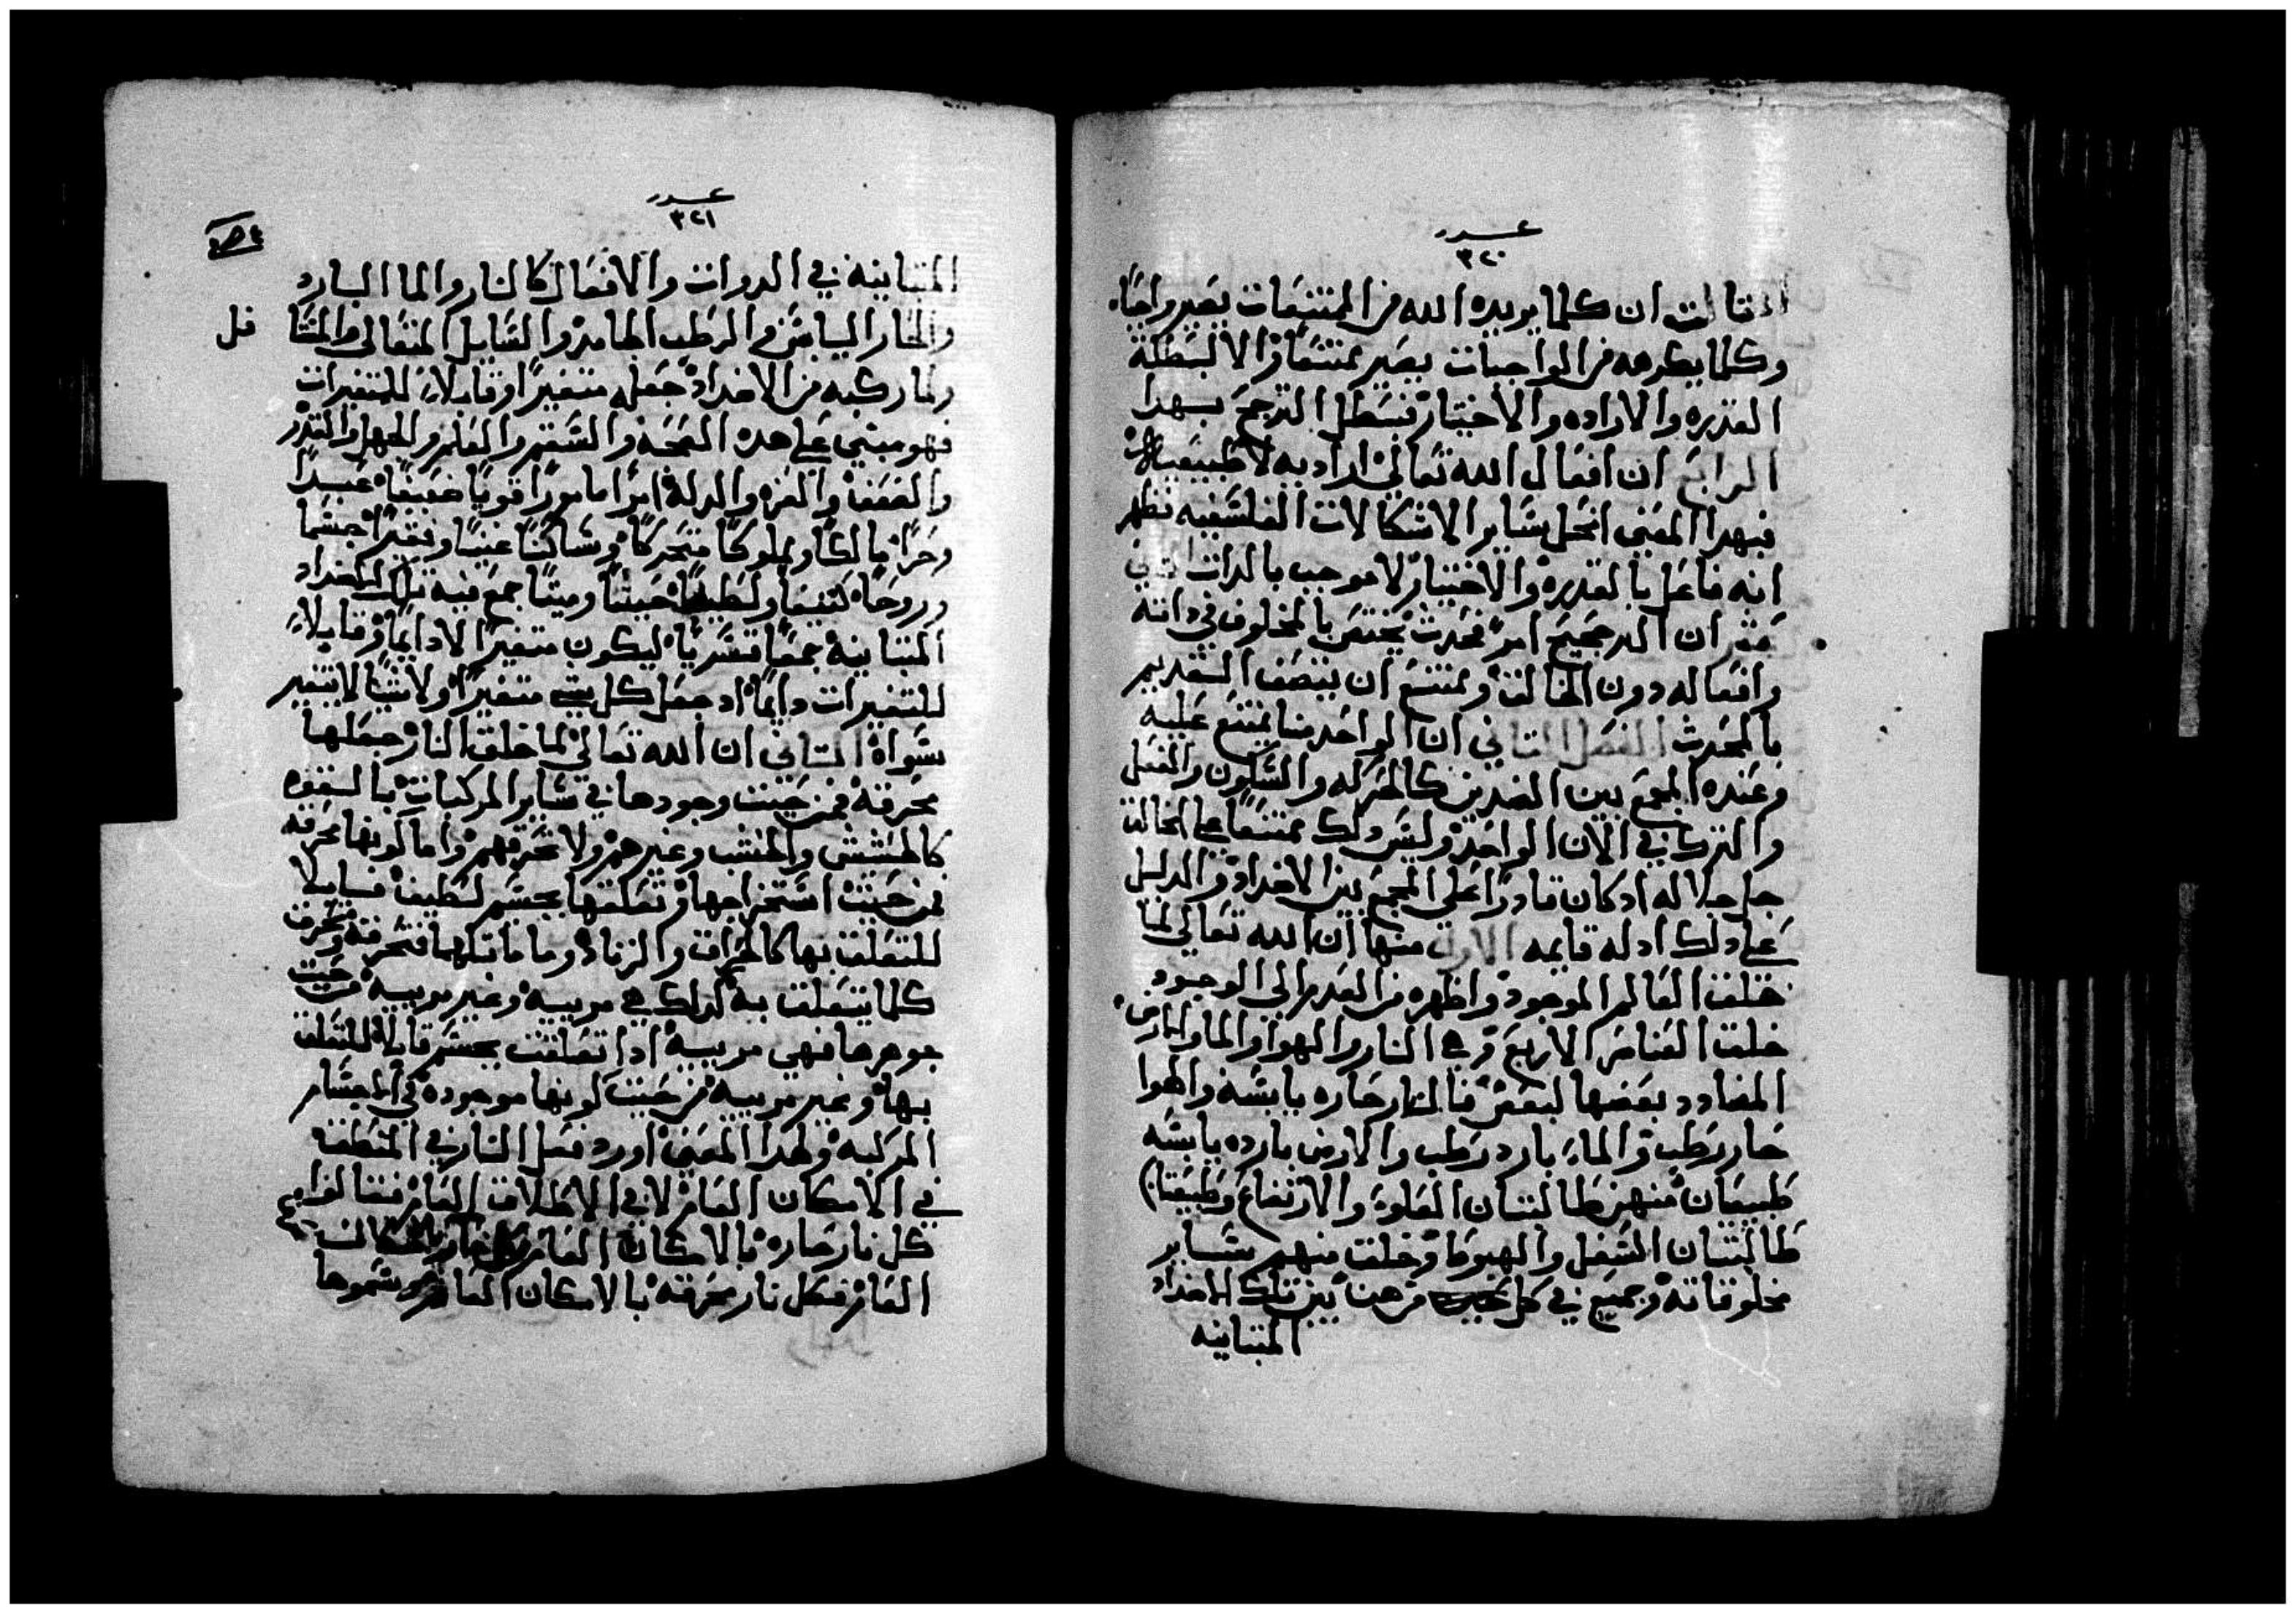 عدد
٣٢٠
قالت ان كلما يريده الله من الممتنعات يصير واجبًا
وكلما يكرهه من الواجبات يصير ممتنعًا والا لبطلة
القدره والاراده والاختيار فبطل الترجيح بهدا
الرابع ان افعال الله تعالي ارادیه لا طبيعيه
فبهدا المعني انحل ساير الاشكالات الفلسفيه فظهر
انه فاعل بالقدره والاختيار لا موجب بالدات
ان الترجيح امر محدث يختص بالمخلوق في داته
وافعاله دون الخالق وممتنع ان يتصف القديم
بالمحدث الفصل التاني ان الواحد منا يمتنع عليه
وعنده الجمع بين الضدين كالحركه والسكون والفعل
والترك في الان الواحد وليس دلك ممتنعًا علي الخالق
جل جلاله اد كان قادرًا علي الجمع بين الاضداد والدليل
علي دلك ادله قايمه الاول منها ان الله تعالي لما
خلق العالم الموجود واظهره من العدم الي الوجود
خلق العناصر الاربع وهي النار والهوا والما والارض
المضادد بعضها لبعض فالنار حاره يابسه والهوا
حار رطب والماء بارد رطب والارض بارده يابسه
طبيعتان منهن طالبتان العلوء والارتفاع وطبيعتان
طالبتان السفل والهبوط وخلق منهم ساير
مخلوقاته وجمع في كل بين تلك الاضداد
المتباينه
عدد
٣٢١
المتباينه في الدوات والافعال كالنار والما البارد
والحار اليابس والرطب الجامد والسايل المتعالي
ولما ركبه من الاضداد جعله متغيرًا وقابلاً للتغيرات
فهو مبني علي هده الصحه والسقم والعلم والجهل والقدر
والضعف والعز والدله امرًا مامورًا قويًا ضعيفًا عبدًا
وحرًا مالكًا ومملوكًا متحركًا وساكنًا غنيًا وفقيرًا جسما
وروحًا كتيفًا ولطيفًا حييًا وميتًا جمع فيه تلك الاضداد
المتباينه جمعًا قسريًا ليكون متغيرًا لا دايمًا وقابلاً
للتغيرات دايمًا اد جعل كل شي متغيرًا ولا شيًا لا يتغير
سواه التاني ان الله تعالي لما خلق النار جعلها
محرقه فمن حيت وجودها في ساير المركبات بالقوه
كالحشيش والخشب وغيرهم ولا تحرقهم واما كونها محرقه
فمن حيت استخراجها وتعلقها بجسم لطيف قابلا
للتعلق بها كالحراق والزناد وما ماتلهما فتحرقه وتحرق
كلما يتعلق به كدلك هي مرييه وغير مرييه من حيت
جوهرها فهي مرييه ادا تعلقت بجسم قابلا للتعلق
بها وغير مرييه من حيت كونها موجوده في الاجسام
المركبه ولهدا المعني اورد فعل النار في المنطق
في الامكان العام لا في الاطلاق العام فقالوا
كل نار حاره بالامكان العام
العام فكل نار محرقه بالامكان العام وسموها